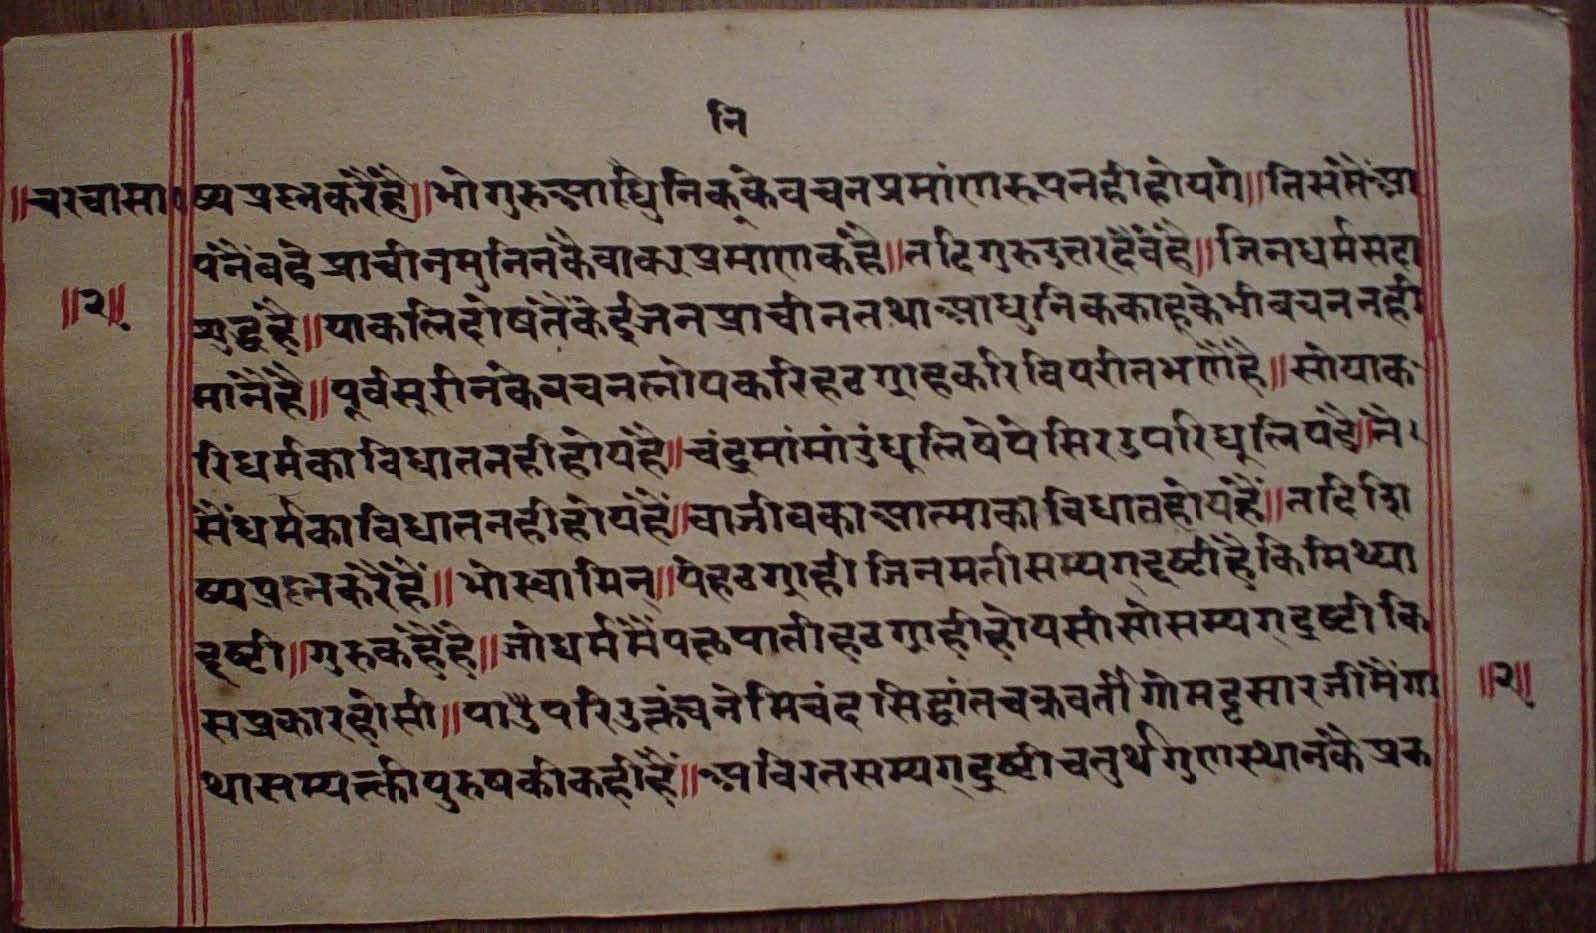 नि
॥चरचासा॰
ष्य प्रश्न करैं है॥ भो गुरु आधुनिक के वचन प्रमांण रूप नही होयगे॥ तिस मैं आ
पनें बडे प्राचीन मुनिन के वाक्य प्रमाण क है॥ तदि गुरु उत्तर दैवै है॥ जिनधर्म सदा
॥२॥
शुद्ध है॥ या कलिदोष तैं केई जन प्राचीन तथा आधुनिक काहू के भी वचन नही
मांनै है॥ पूर्व सूरीन के वचन लोप करि हठग्राह करि विपरीत भणै है॥ सो या क
रि धर्म का विघात नही होय है॥ चंद्रमां मां उं धूलि षेपे सिर उपरि धूलि पडै॥ नै।
सैं धर्म का विघात नही होय हैं॥ वा जीव का आत्मा का विघात होय हैं॥ तदि शि
ष्य प्रश्न करैं हैं॥ भो स्वामिन्॥ ये हठग्राही जिनमती सम्यग्दृष्टी है कि मिथ्या
दृष्टी॥ गुरु कहै है॥ जो धर्म मैं पक्षपाती हठग्राही होयसी सो सम्यग्दृष्टी कि
स प्रकार होसी॥ या उपरि उक्तंच नेमिचंद सिद्धांत चक्रवर्ती गोमट्टसारजी मैं गा
॥२॥
था सम्यक्ती पुरुष की कही है॥ अविरत सम्यग्दृष्टी चतुर्थ गुणस्थान के प्रक